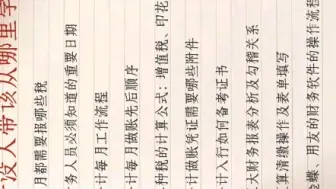 没人带该从哪里学
月都需要报哪些税
务人员必须知道的重要日期
计每月工作流程
计每月做账先后顺序
种税的计算公式：增值税、印花
计做账凭证需要哪些附件
计入行如何备考证书
大财务报表分析及勾稽关系
算清缴操作及表单填写
蝶、用友的财务软件的操作流程